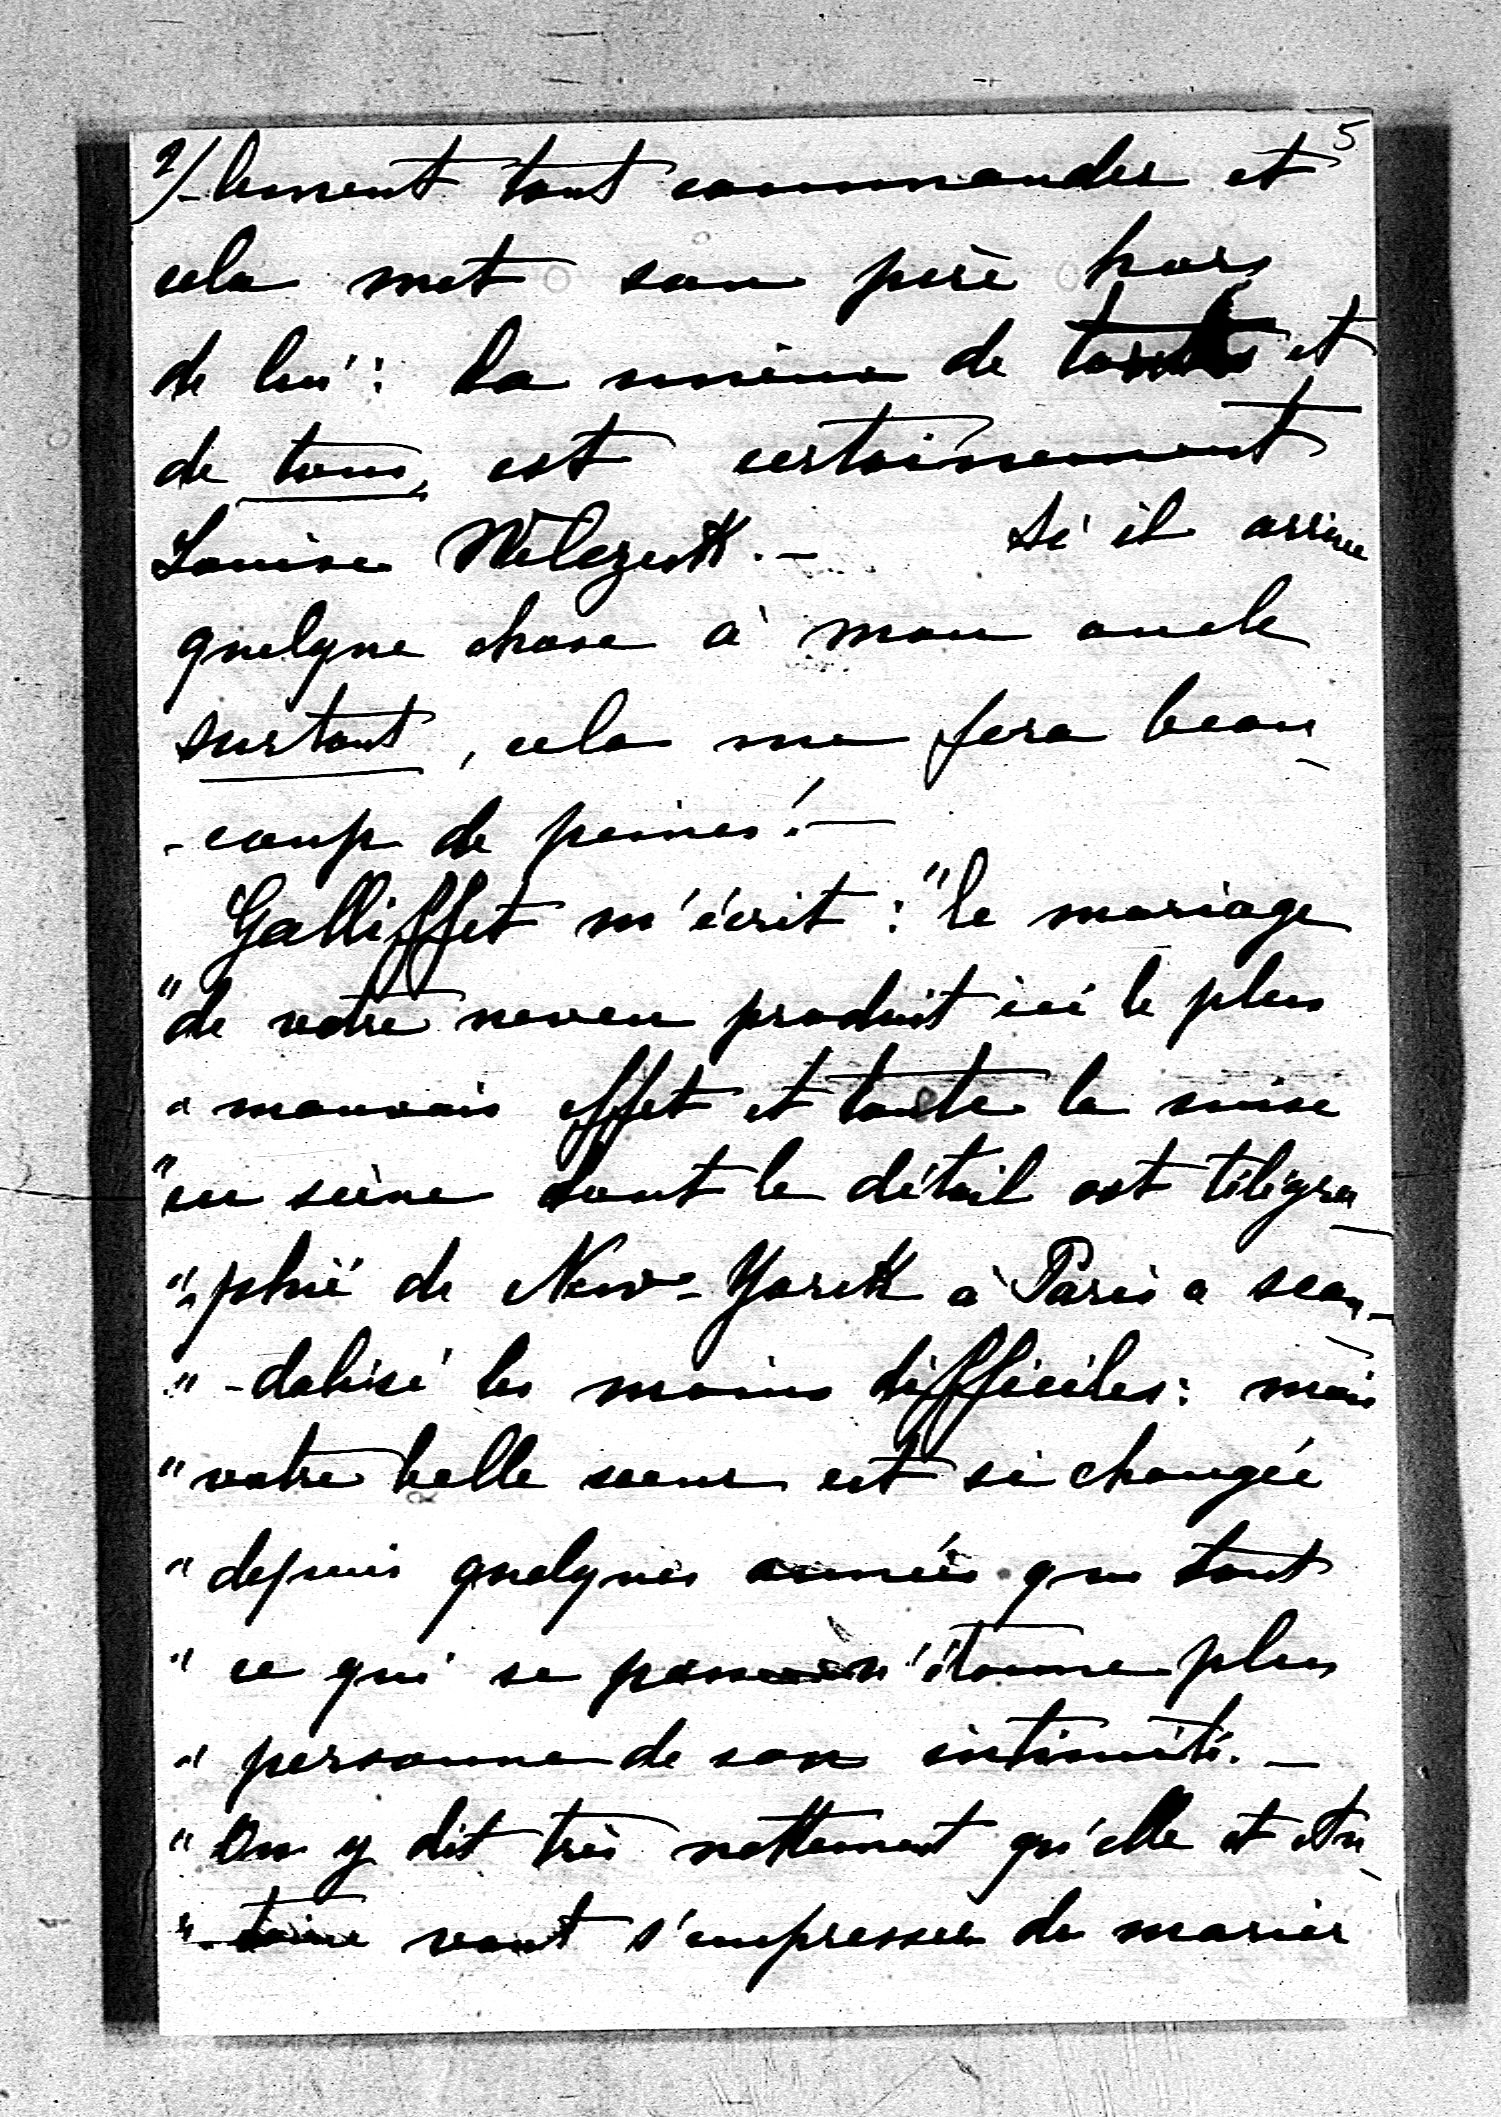 2/ -lement tout commander et 5
cela met son père hors
de lui: la mieux de toutes et
de tous, est certainement
Louise Wilczeck. — Si il arrive
quelque chose à mon oncle
surtout, cela me fera beau-
-coup de peines! —
Galliffet m'écrit: "le mariage
"de votre neveu produit ici le plus
" mauvais effet et toute la mise
"en scène dont le détail est télégra-
"-phié de New-Yorck à Paris a scan-
" -dalisé les moins difficiles: mais
" votre belle soeur est si changée
" depuis quelques années que tout
" ce qui se passe n'étonne plus
" personne de son intimité. —
" On y dit très nettement qu'elle et An-
" -toine vont s'empresser de marier